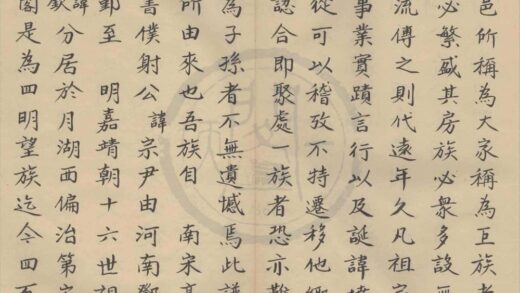 邑所稱為大家稱為巨族者
必繁盛其房族必衆多設無
流傳之則代遠年久凡祖宗
事業實蹟言行以及誕諱墳
從可以稽攷不特遷移他鄉
認合即聚處一族者恐亦難
為子孫者不無遺憾焉此譜
所由來也吾族自 南宋高
書僕射公諱宗尹由河南鄧
鄞至 明嘉靖朝十六世祖
諱欽分居於月湖西偏治第宅
閣是為四明望族迄今四百